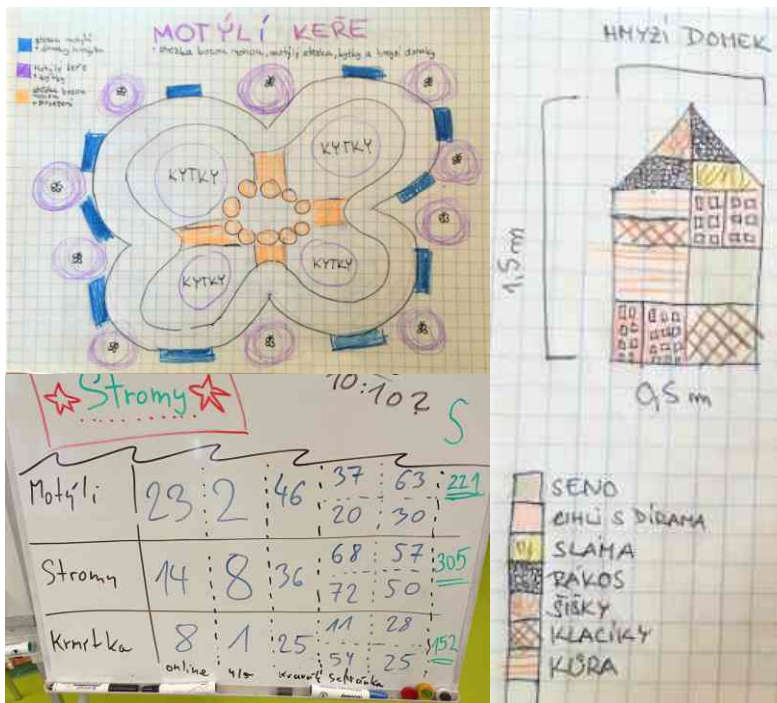 MOTÝLÍ KEŘE
stezka bosou nohou, motýlí stezka, kytky a hmyzí domky
Motýlí keře
+ kytky
stezka bosou
KYTKY
KYTKY
KYTKY
KYTKY
HMYZÍ DOMEK
1,5 m
0,5 m
SENO
CIHLI S DÍRAMA
SLÁMA
RÁKOS
ŠIŠKY
KLACÍKY
KŮRA
Stromy
10:10?
S
Motýli 23 2 46 37 63 20 30 221
Stromy 14 8 36 68 57 72 50 305
Krmítka 8 1 25 11 28 54 25 152
online
schránka